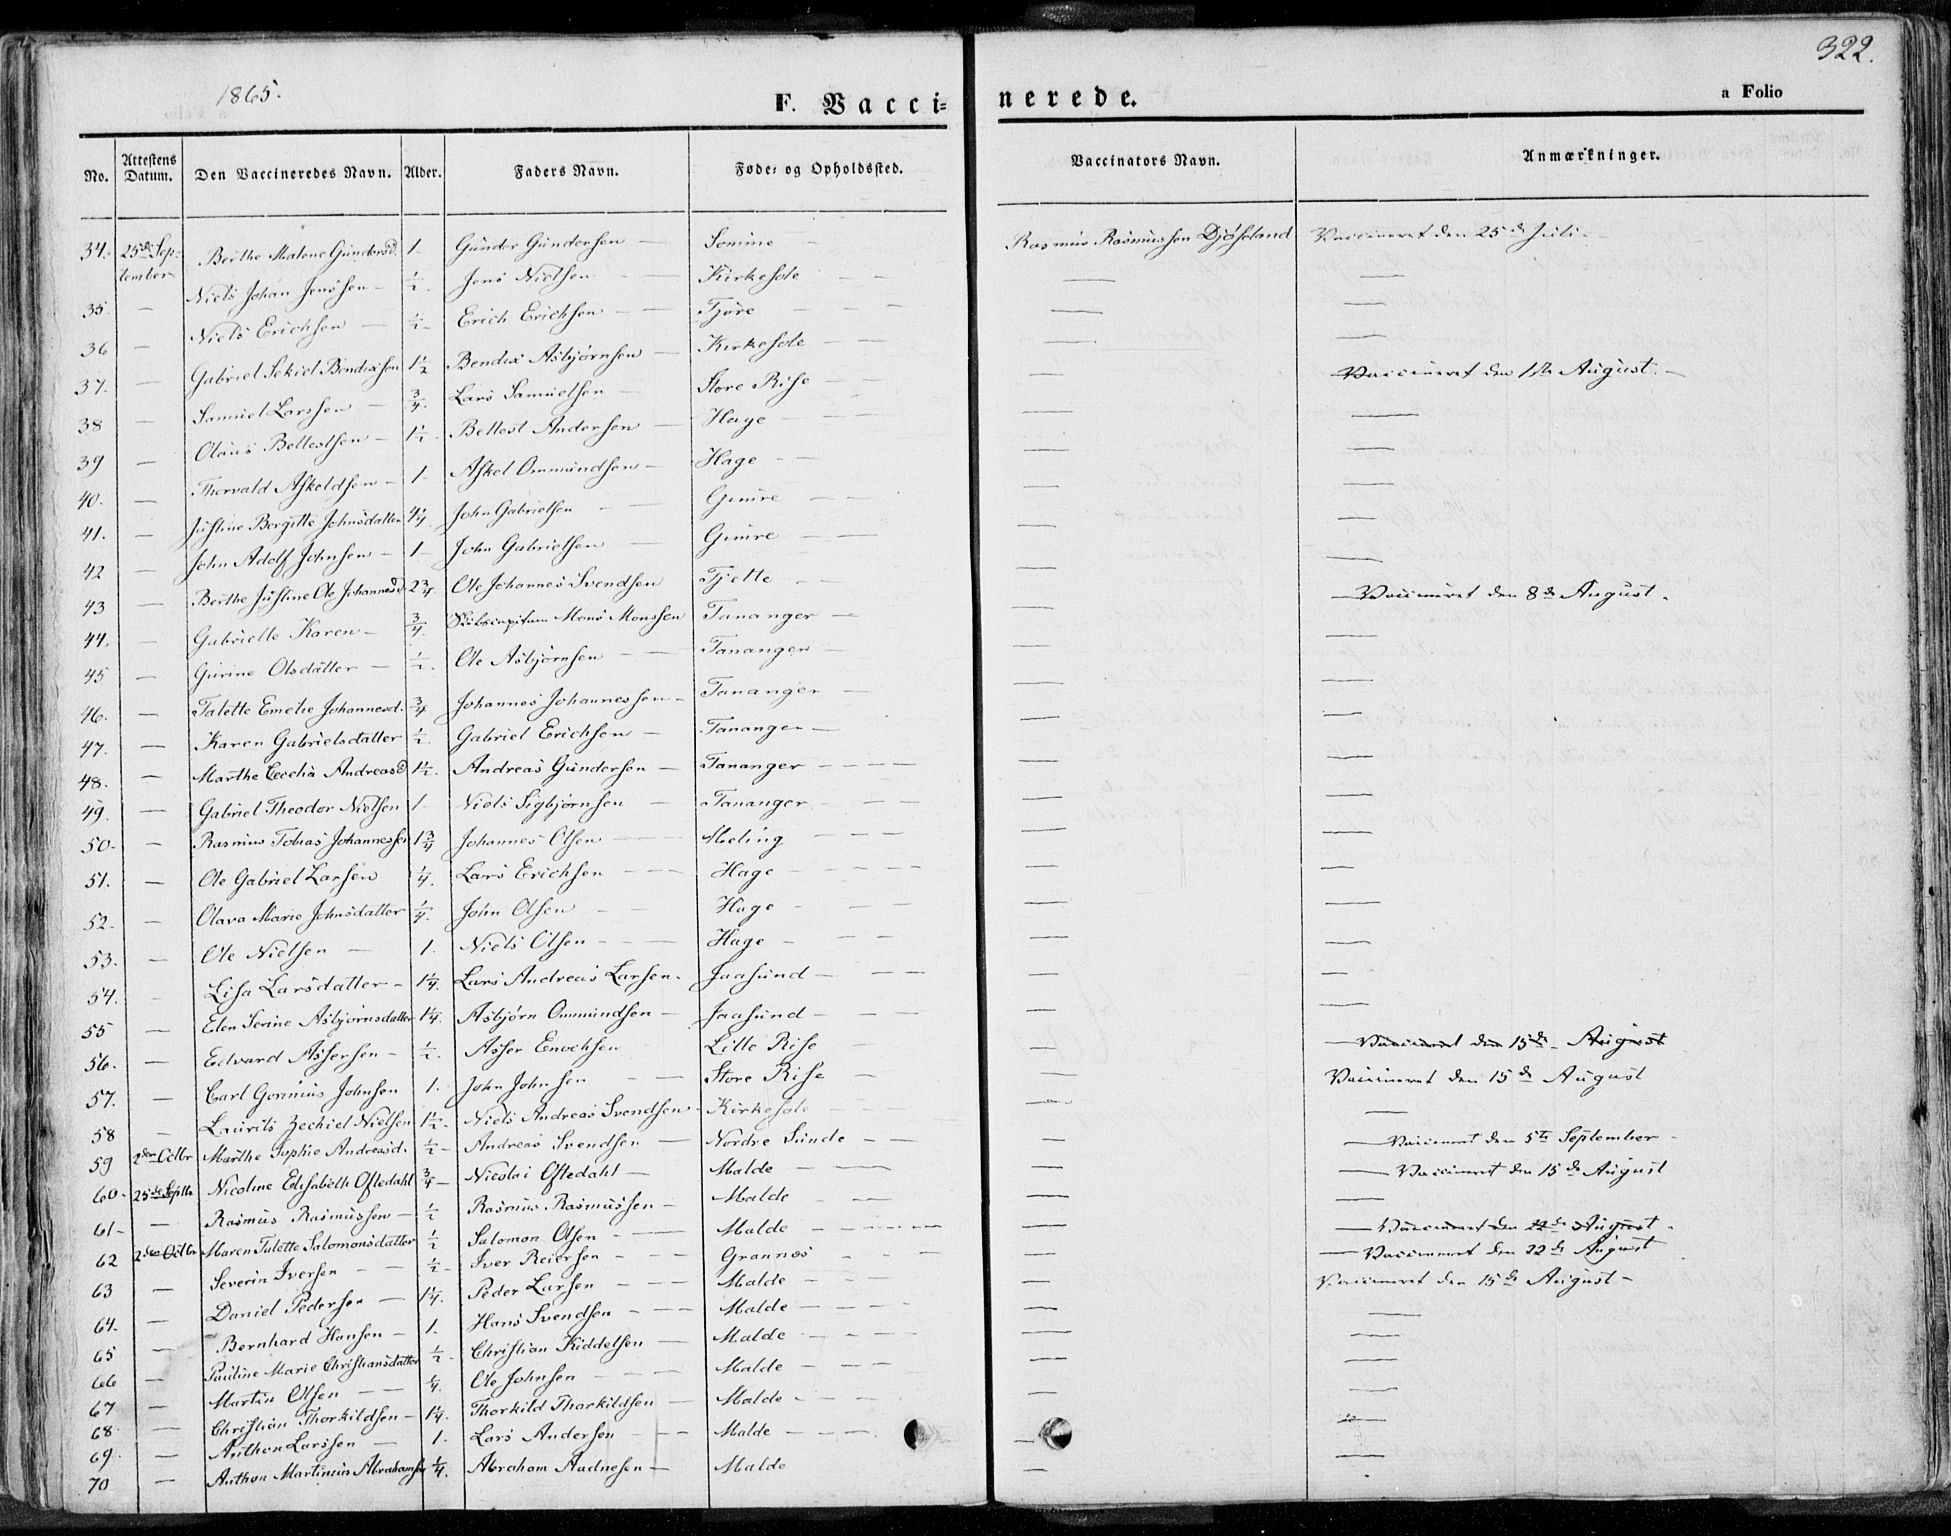 322.
1865.
F. Vaccinerede.
a Folio
No. Attestens Datum. Den Vaccineredes Navn. Alder. Faders Navn. Føde- og Opholdssted. Vaccinators Navn. Anmærkninger.
34. 25de September Berthe Malene Gundersd. 1 Gunder Gundersen — Somme — Rasmus Rasmussen Vaccineret den 25de Juli
35. — Niels Johan Jensen — 1/2 Jens Nielsen — Kirkesole — —
36 — Niels Erichsen — 1/2 Erich Erichsen — Tjore — —
37. — Gabriel Sekiel Bendixsen 1 1/2 Bendix Asbjørnsen — Kirkesole — —
38 — Samuel Larssen — 3/4 Lars Samuelsen — Store Rise — Vaccineret den 1ste August. —
39 — Olaus Bellestsen — 1 1/2 Bellest Andersen — Hage — —
40. — Thorvald Askeldsen — 1 Askel Ommundsen — Hage — —
41. — Justine Bergitte Johnsdatter John Gabrielsen — Gimre — —
42 — John Adolf Johnsen — 1 John Gabrielsen — Gimre — —
43 — Berthe Justine Ole Johannesd 2 3/4 Ole Johannes Svendsen Tjelte — —
44. — Gabrielle Karen — 3/4 Skibscapitain Mons Monssen Tananger — Vaccineret den 8de August.
45 — Gurine Olsdatter — 1/2 Ole Asbjørnsen — Tananger — —
46. — Talette Emelie Johannesd. 3/4 Johannes Johannessen — Tananger — —
47. — Karen Gabrielsdatter 1/2 Gabriel Erichsen — Tananger — —
48. — Marthe Cecelia Andreasd 1 1/2 Andreas Gundersen — Tananger — —
49. — Gabriel Theodor Nielsen 1 Niels Sigbjørnsen — Tananger — —
50. — Rasmus Tobias Johannessen 1 3/4 Johannes Olsen — Meling — —
51. — Ole Gabriel Larsen 1/4 Lars Erichsen — Hage — —
52. — Olava Marie Johnsdatter 1/4 John Olsen — Hage — —
53. — Ole Nielsen — 1. Niels Olsen — Hage — —
54. — Lisa Larsdatter — 1 1/4 Lars Andreas Larsen. Jaasund — —
55 — Elen Serine Asbjørnsdatter 1 1/4 Asbjørn Ommundsen — Jaasund — —
56. — Edvard Assersen — 1/2 Asser Enochsen Lille Rise — Vaccineret den 15de August
57. — Carl Johnsen 1. John Johnsen — Store Rise — Vaccineret den 15de August
58 — Laurits Zechiel Nielsen 1 1/2 Niels Andreas Svendsen — Kirkesole — —
59 2den Octbr Marthe Sophie Andreasd. 1/2 Andreas Svendsen — Nordre Sunde — Vaccineret den 5te September
60 25de Septbr Nicoline Elisabeth Oftedahl 3/4 Nicolai Oftedahl — Malde — Vaccineret den 15de August
61 — Rasmus Rasmussen — 1/2 Rasmus Rasmussen — Malde — —
62 2den Octbr Maren Talette Salomonsdatter 1/2 Salomon Olsen — Malde — Vaccineret den 22de August
63 — Severin Iversen — 1/2 Iver Reiersen — Grannes — Vaccineret den 22de August
64. — Daniel Pedersen — 1 1/4 Peder Larsen — Malde — Vaccineret den 15de August —
65 — Bernhard Hansen — 1. Hans Svendsen — Malde — —
66 — Pauline Marie Christiansdatter 1/2 Christian Kiddelsen Malde — —
67 — Martin Olsen — 1/4 Ole Johnsen — Malde — —
68 — Christian Thorkildsen — 1 1/4 Thorkild Thorkildsen — Malde — —
69. — Anthon Larssen — 1. Lars Andersen — Malde — —
70 — Anthon Martinius Abrahamsen 1/4 Abraham Aadnesen — Malde —